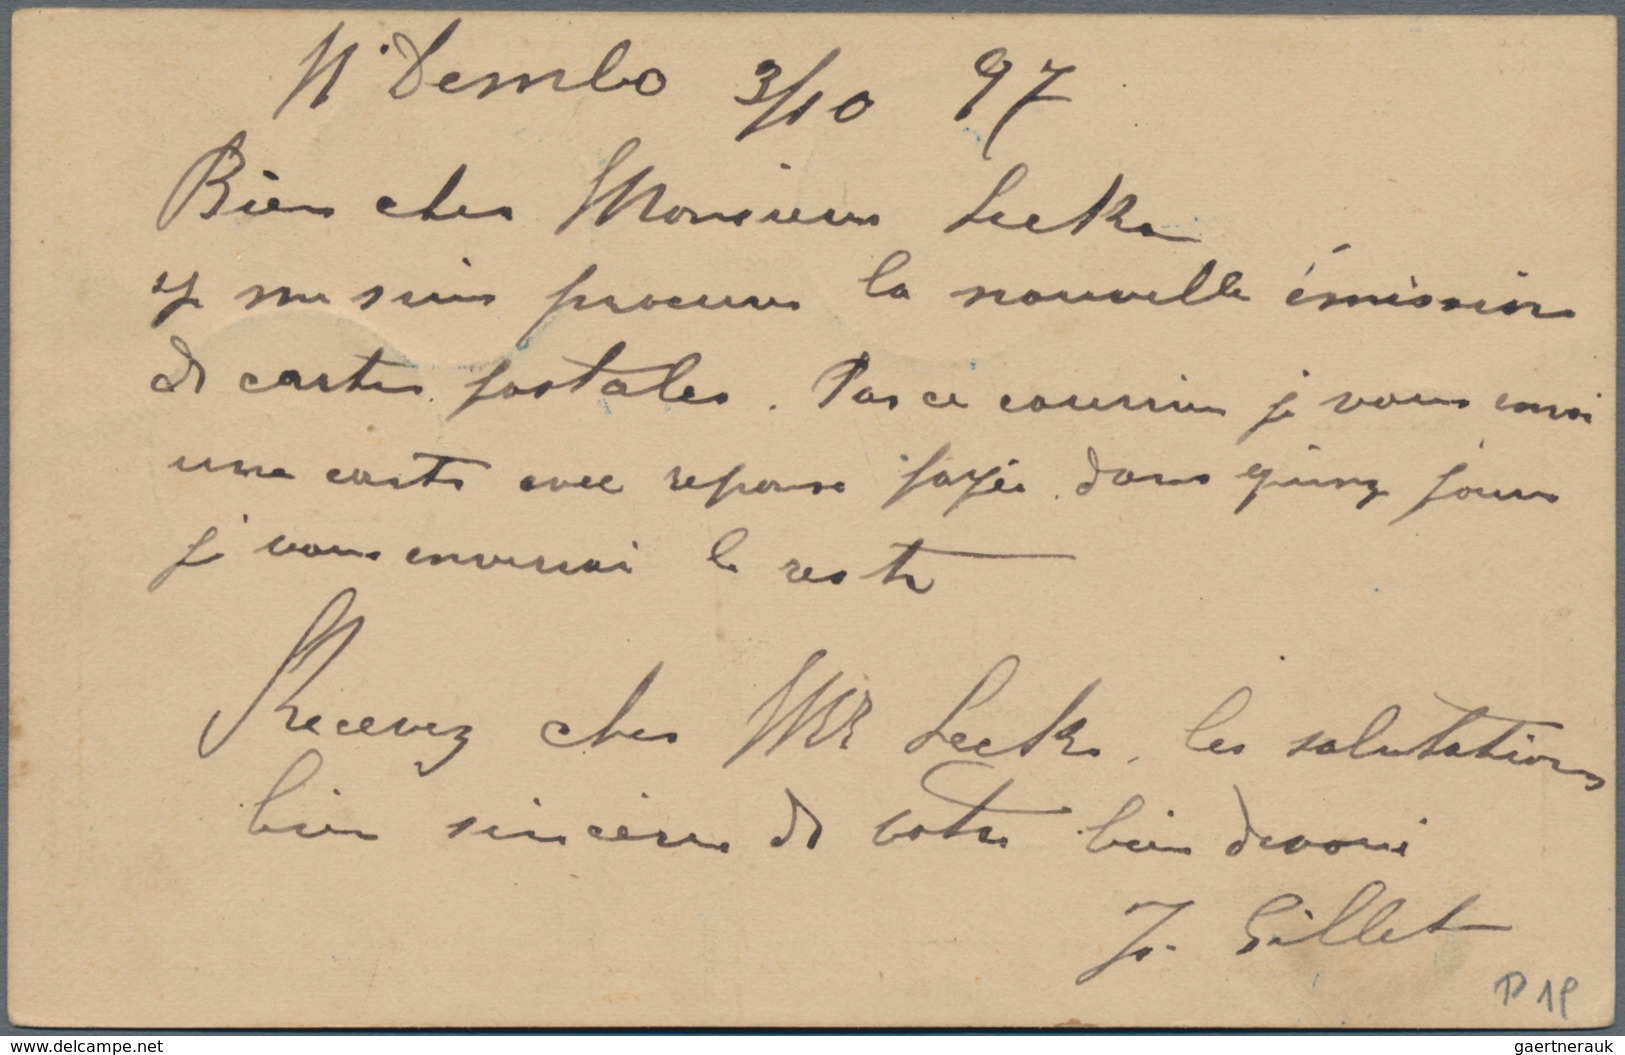 N'Dembo 3/10 97
Bien cher Monsieur Leck
je me suis procuré la nouvelle émission
de cartes postales. Par ce courrier je vous envoi
une carte avec reponse payée. dans quinze jours
je vous enverrai le reste
Recevez cher Mr Leck, les salutations
bien sincères de votre bien devoué
J. Gillet
P 19
www.delcampe.net
gaertnerauk